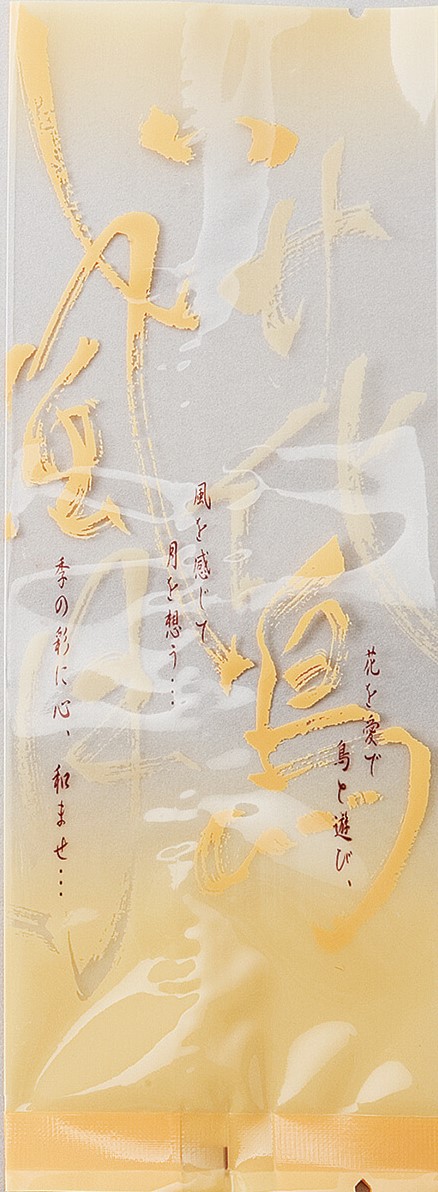 花鳥風月
花を愛で
鳥と遊び、
風を感じて
月を想う…
季の彩に心、和ませ…